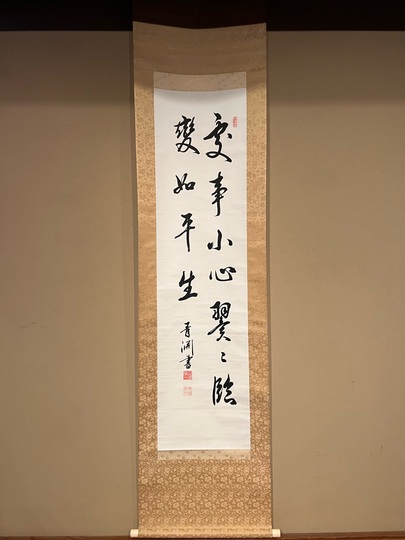 處事小心翼〻臨
變如平生
青淵書